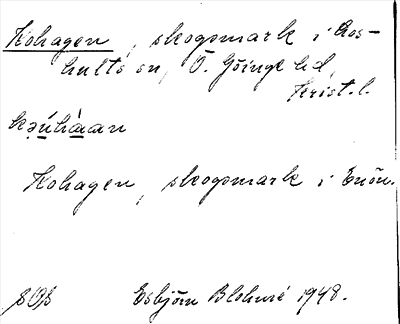 Kohagen, skogsmark i Los-
hults sn, Ö. Göinge hd,
Krist. l.
kǝụ́hàan
Kohagen, skogsmark i Enön.
SOB Esbjörn Blohmé 1948.